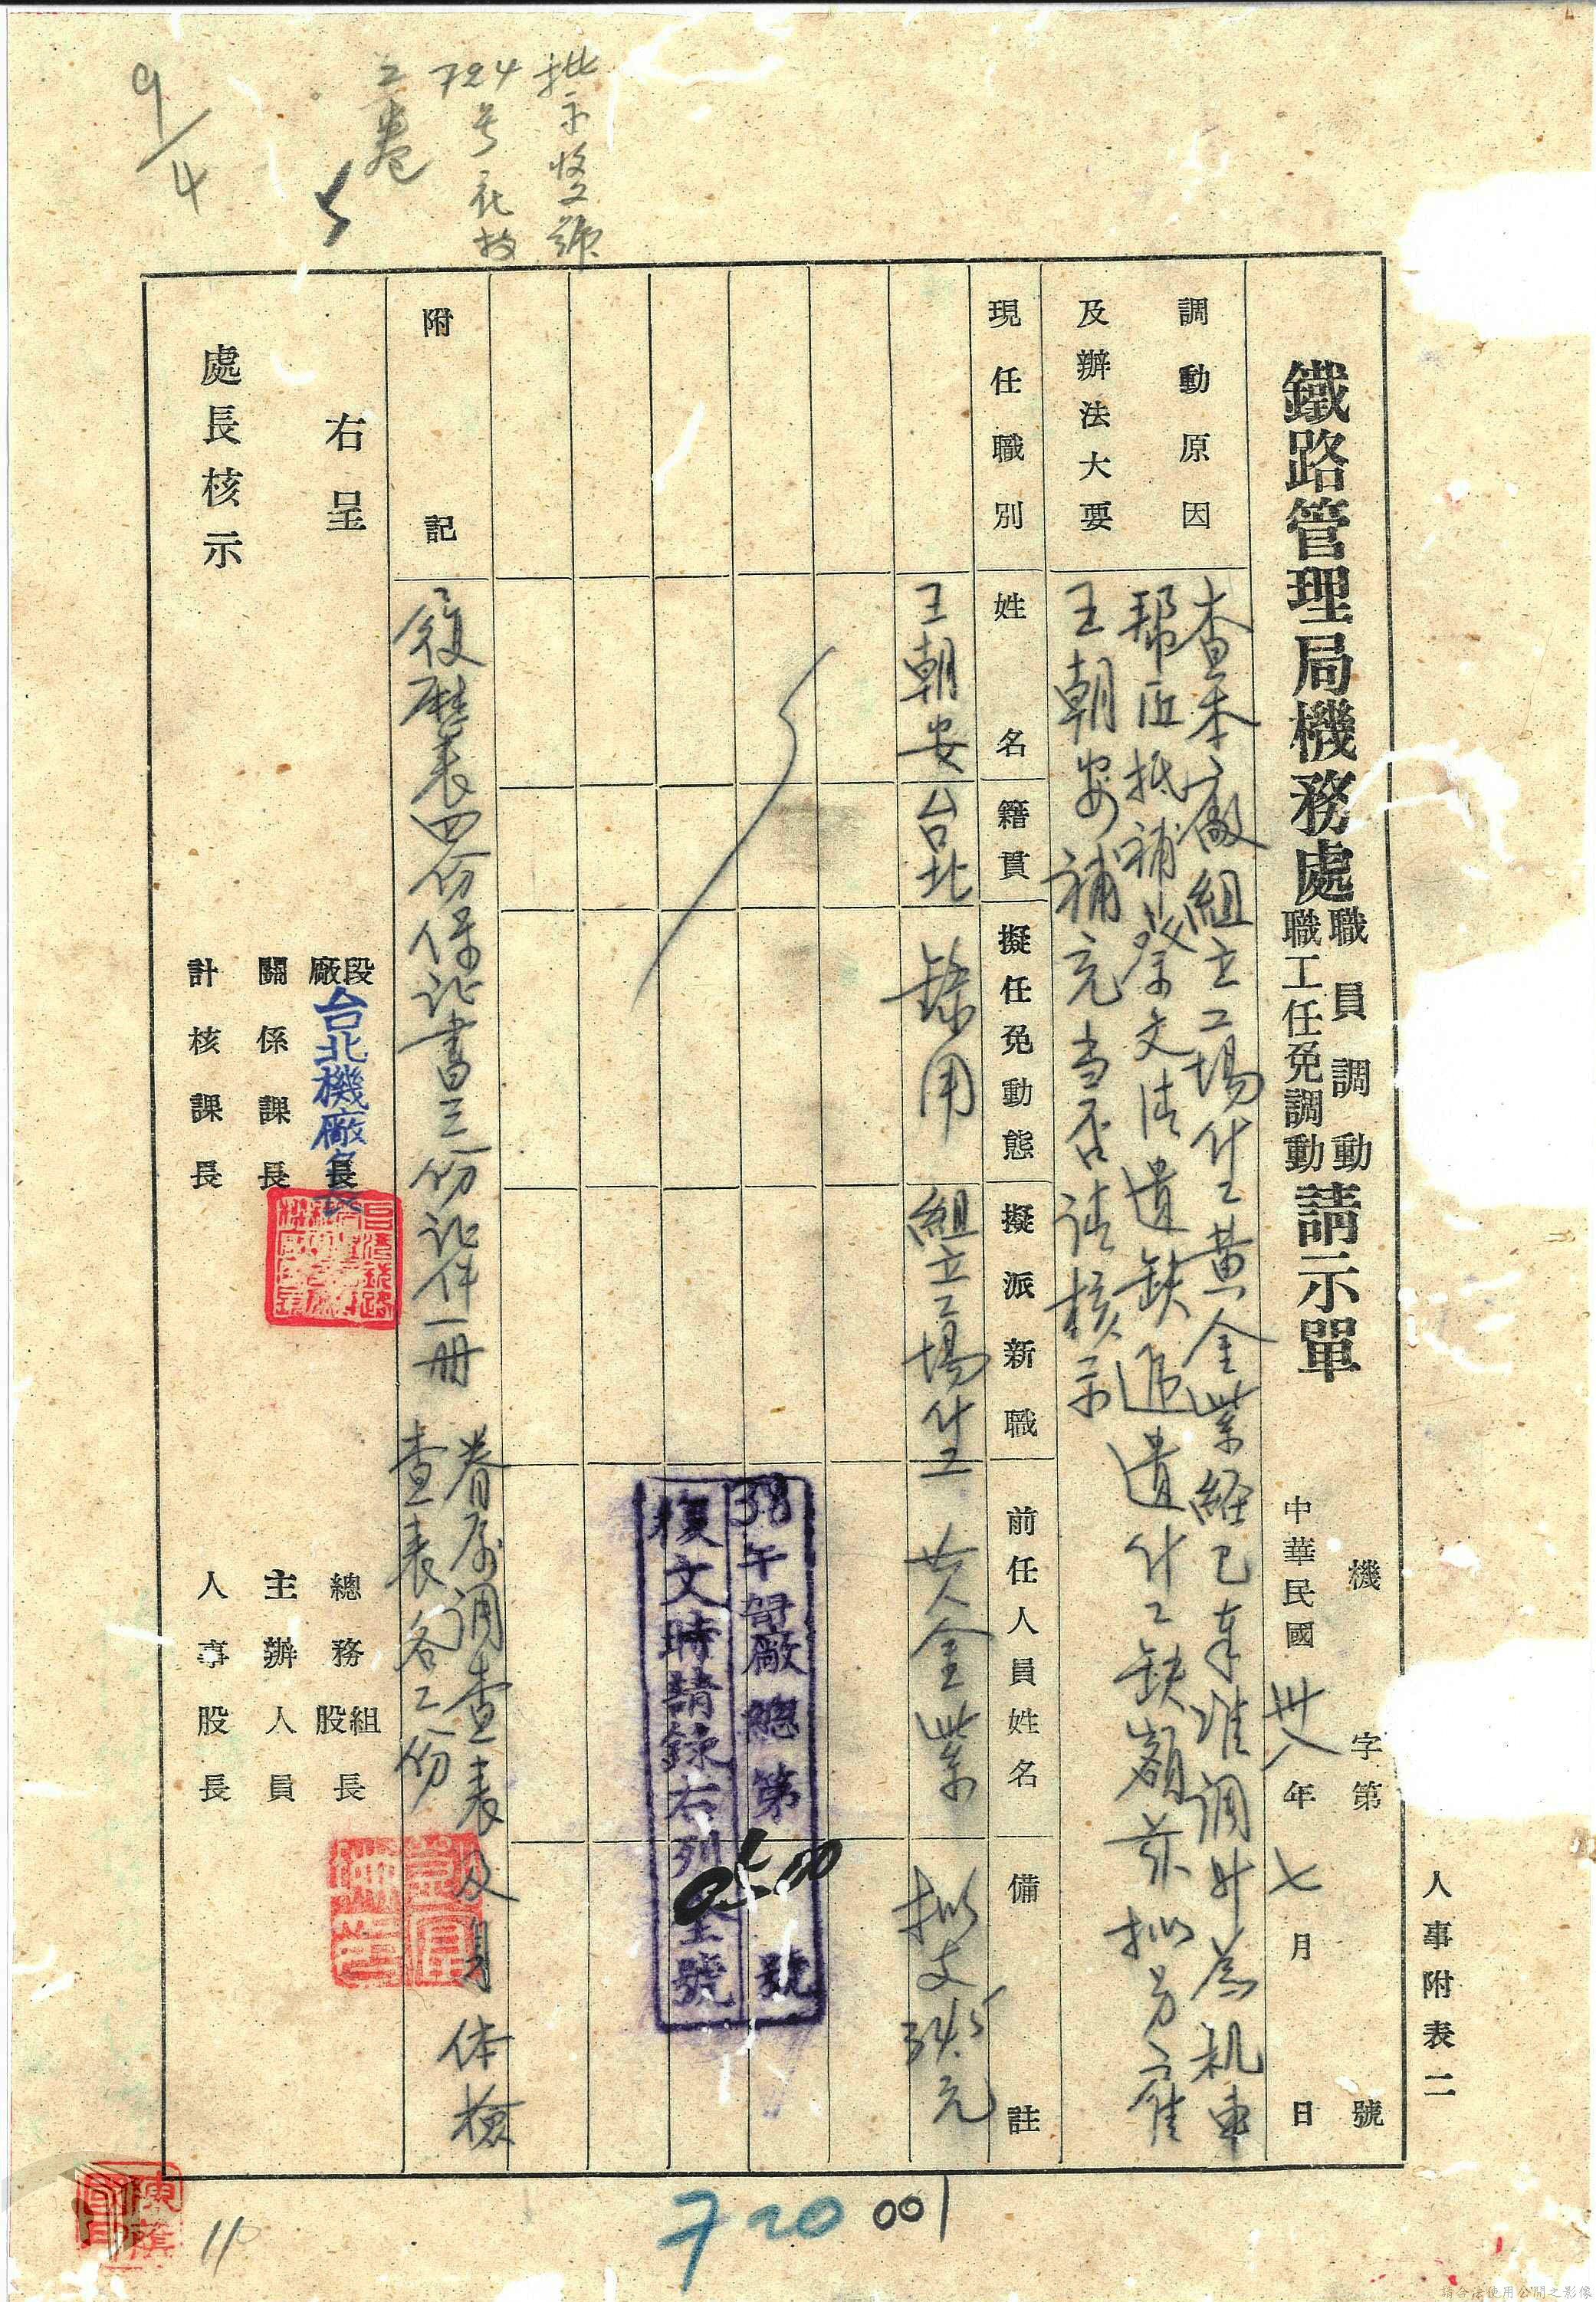 人事附表二
鐵路管理局機務處
職員調動
職工任免調動
請示單
機 字第 號
中華民國卅八年七月 日
調動原因
及辦法大要
查本廠組立工場什工黃金業經已奉准調升為机車
帮匠抵補蔡文清遺缺遞遺什工缺額茲擬另雇
王朝安補充当否请核示
現任職別
姓名
籍貫
擬任免動態
擬派新職
前任人員姓名
備註
王朝安
台北
錄用
組立工場什工
黃金業
擬支34.5元
38年 廠總第 號
0500
復文時請錄右列 號
附記
履歷表四份保证書三份证件一册
眷屬调查表及身体檢
查表各二份
右呈
處長核示
廠段長
台北機廠長
關係課長
計核課長
總務股組長
主辦人員
人事股長
批示收文號
724号
9/4
720
001
11
陳
請合法使用公開之影像